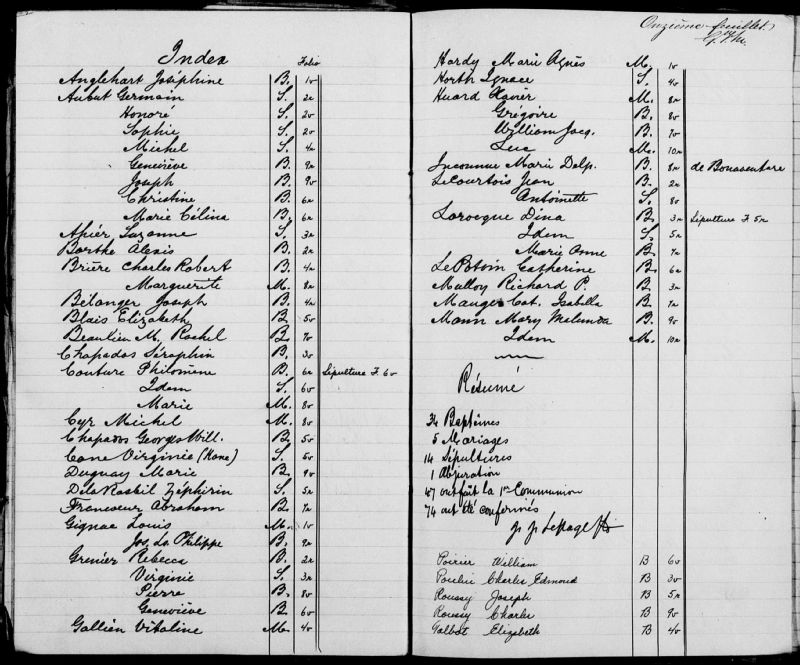 Index
Folio
Anglehart Joséphine B. 1v
Aubut Germain S. 2r
Honoré S. 2v
Sophie S. 2v
Michel S. 4r
Geneviève B. 9r
Joseph B. 9v
Christine B. 6r
Marie Célina B. 6r
Apier Suzanne S. 3r
Barthe Alexis B. 2r
Brière Charles Robert B. 4r
Marguerite M. 8r
Bélanger Joseph B. 4r
Blais Elizabeth B. 5v
Beaulieu M. Rachel B. 7v
Chapados Séraphin B. 3v
Couture Philomène B. 6r Sépulture F. 6v
Idem S. 6v
Marie M. 8v
Cyr Michel M. 8v
Chapados Georges Will. B. 5v
Cane Virginie (Kane) S. 5v
Duguay Marie B. 9v
Dela Rosbil Zéphirin S. 5r
Francoeur Abraham B. 7r
Gignac Louis M. 1v
Jos. Ls. Philippe B. 9r
Grenier Rebecca B. 2r
Virginie S. 3r
Pierre B. 8v
Geneviève B. 6v
Gallien Vitaline M. 4v
Onzième feuillet.
Hardy Marie Agnès M. 1v
Horth Ignace S. 4v
Huard Xavier M. 8r
Grégoire B. 8v
William Jacq. B. 7v
Luc M. 10r
Inconnue Marie Delp. B. 8r de Bonaventure
LeCourtois Jean B. 2r
Antoinette S. 8v
Larocque Dina B. 3r Sépulture F. 5r
Idem S. 5r
Marie Anne B. 7r
LePotvin Catherine B. 6r
Mulloy Richard P. B. 3r
Mauger Cat. Isabella B. 7r
Mann Mary Malunda B. 9v
Idem M. 10r
Résumé
34 Baptêmes
5 Mariages
14 Sépultures
1 Abjuration
47 ont fait la 1re Communion
74 ont été confirmés
J. J. Lepage Ptre
Poirier William B 6v
Poulin Charles Edmond B 3v
Roussy Joseph B 5r
Roussy Charles B 9v
Talbot Elizabeth B 4v